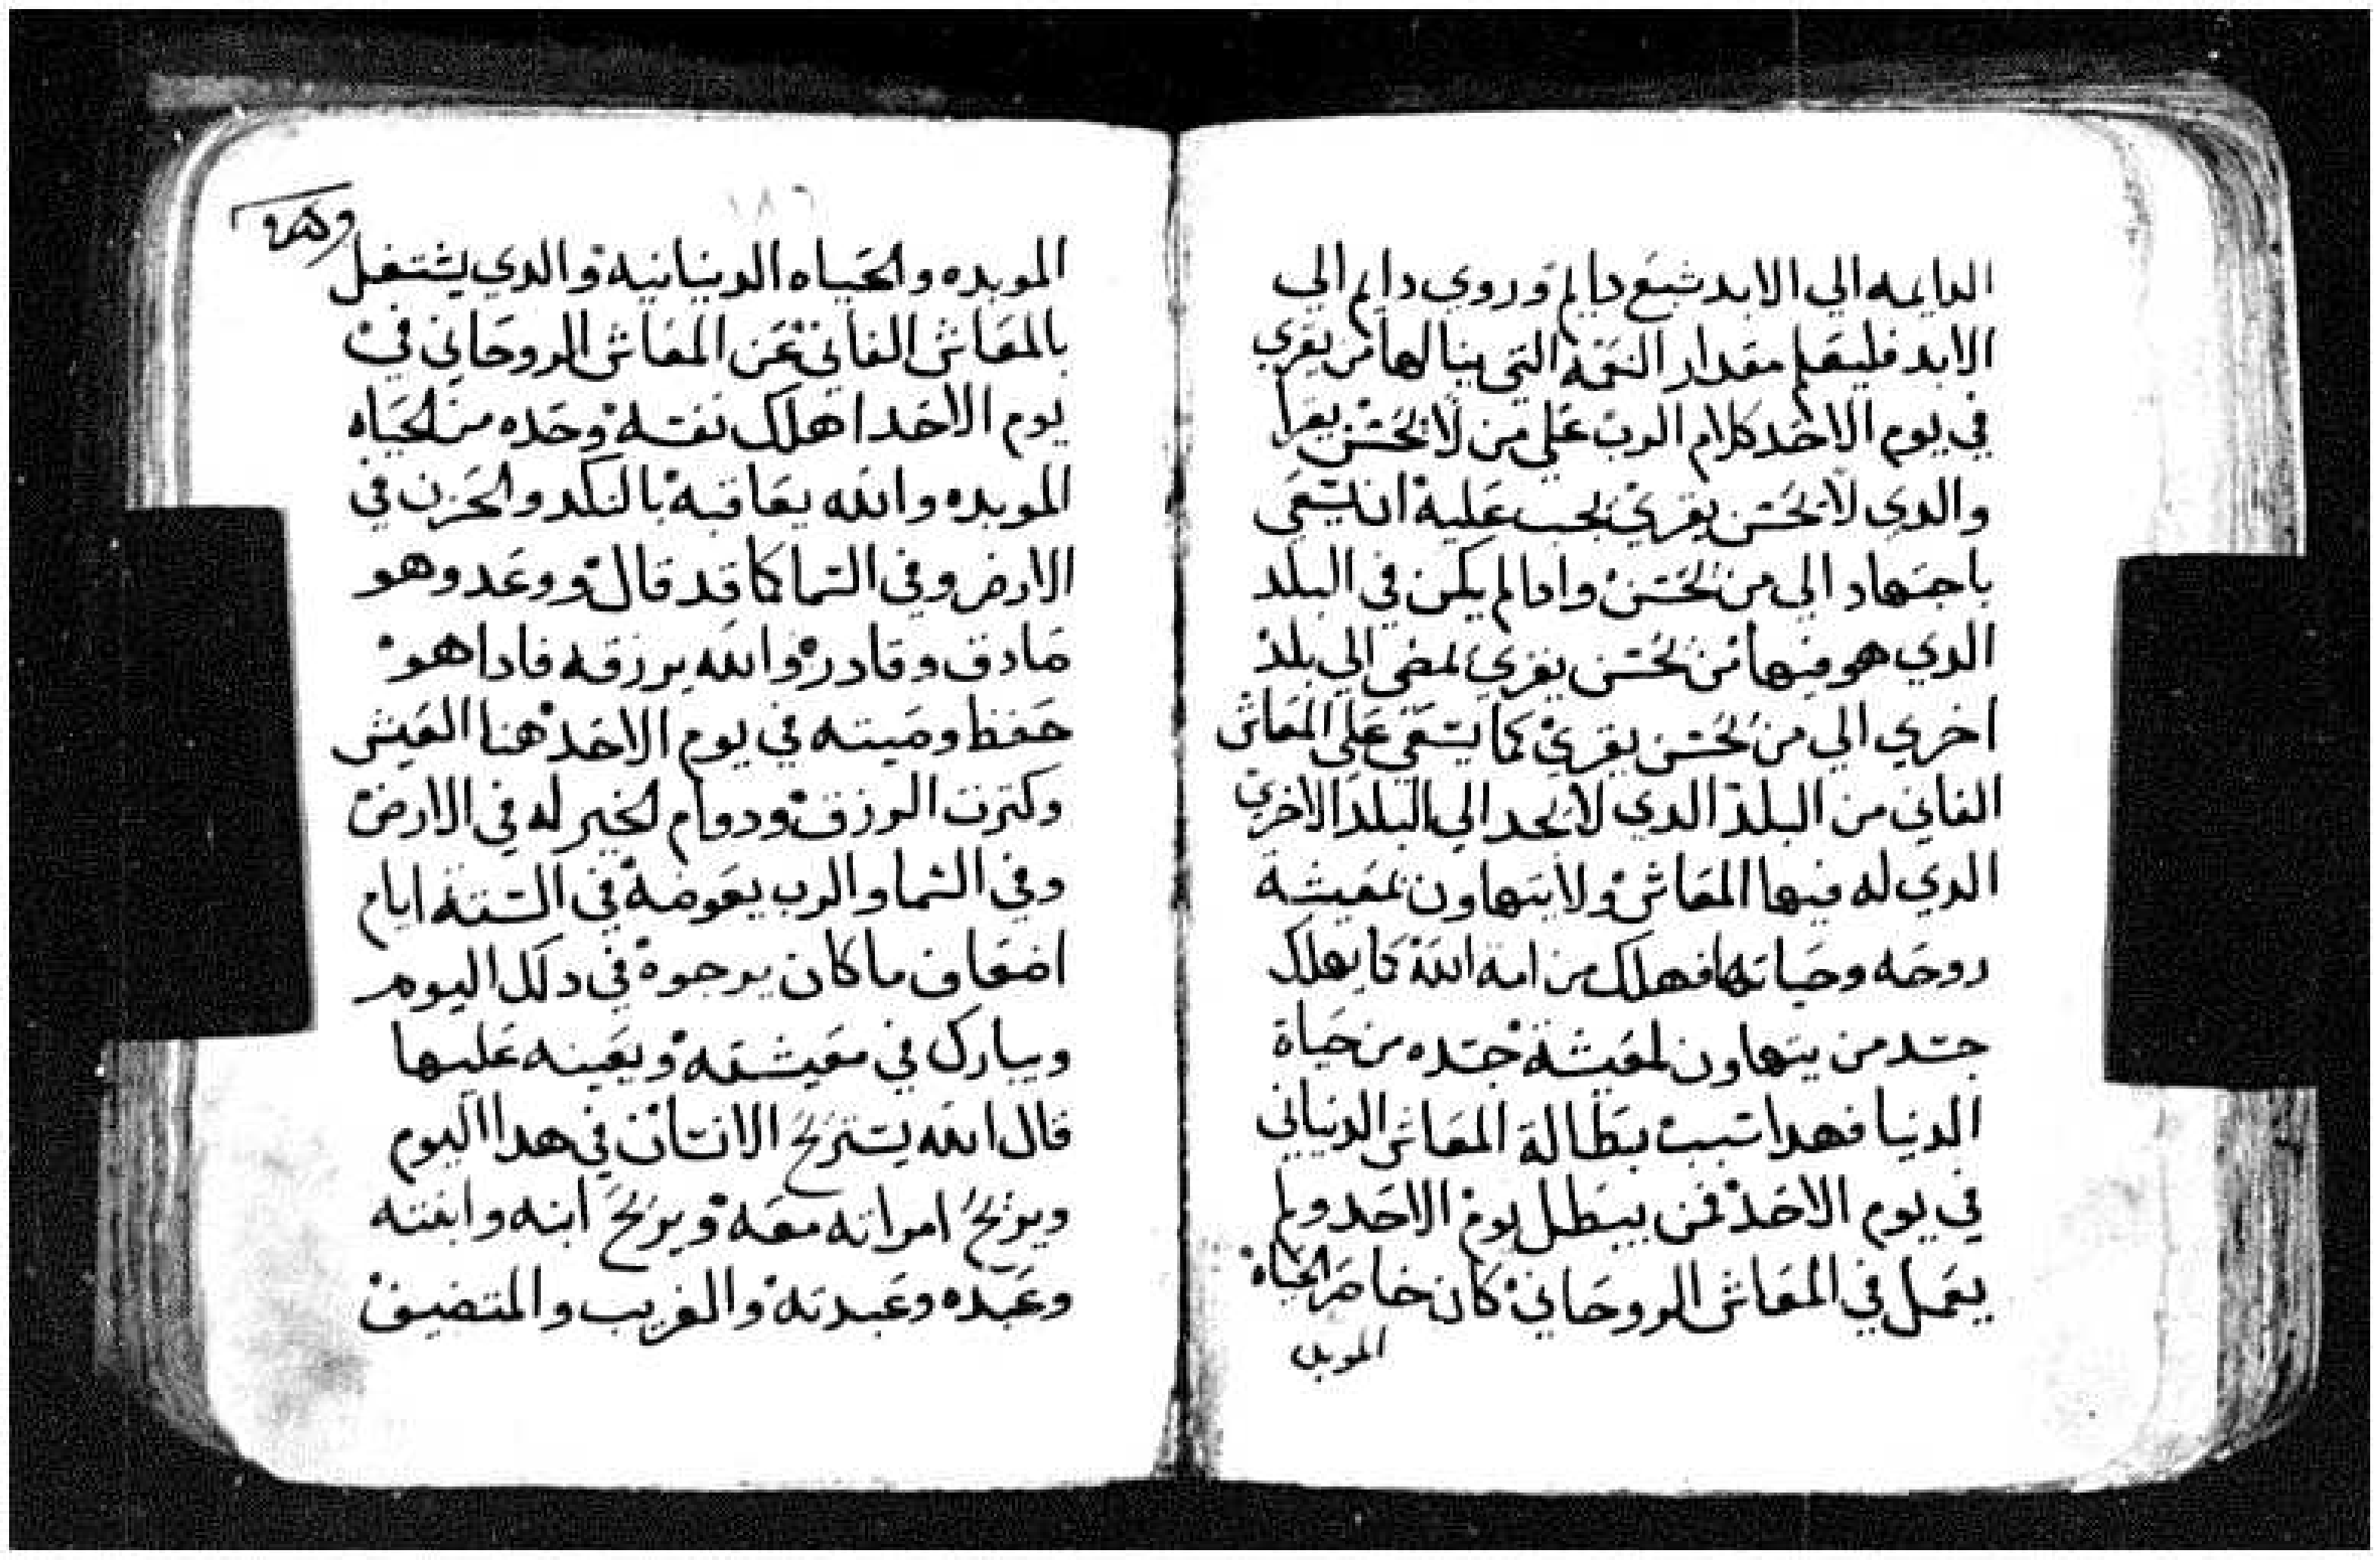 الدايمه الي الابد شبع دايم وروي دايم الي
الابد فليعلم مقدار النعمه التي ينالها من يقري
في يوم الاحد كلام الرب علي من لا يحسن يقرا
والدي لا يحسن يقري يجب عليه ان يسعي
باجتهاد الي من يحسن وادا لم يكن في البلد
الدي هو فيها من يحسن يقري يمضي الي بلد
اخري الي من يحسن يقري كما يسعي علي المعاش
الفاني من البلد الدي لا يجد الي البلد الاخري
الدي له فيها المعاش ولا يتهاون بمعيشة
روحه وحياتها فهلك من امة الله كما يهلك
جسد من يتهاون لمعيشة جسده من حياة
الدنيا فهدا سبب بطالة المعاش الدنياني
في يوم الاحد فمن يبطل يوم الاحد ولم
يعمل في المعاش الروحاني كان خاسر الحياه
الموبد
١٨٦
الموبده والحياه الدنيانيه والدي يشتغل
بالمعاش الفاني عن المعاش الروحاني في
يوم الاحد اهلك نفسه وحده من الحياه
الموبده والله يعاقبه بالنكد والحزن في
الارض وفي السما كما قد قال ووعد وهو
صادق وقادر والله يرزقه فادا هو
حفظ وصيته في يوم الاحد هنا العيش
وكترت الرزق ودوام الخير له في الارض
وفي السما والرب يعوضه في الستة ايام
اضعاف ما كان يرجوه في دلك اليوم
ويبارك في معيشته ويعينه عليها
قال الله يستريح الانسان في هدا اليوم
ويريح امراته معه ويريح ابنه وابنته
وعبده وعبدته والغريب والمتضيف